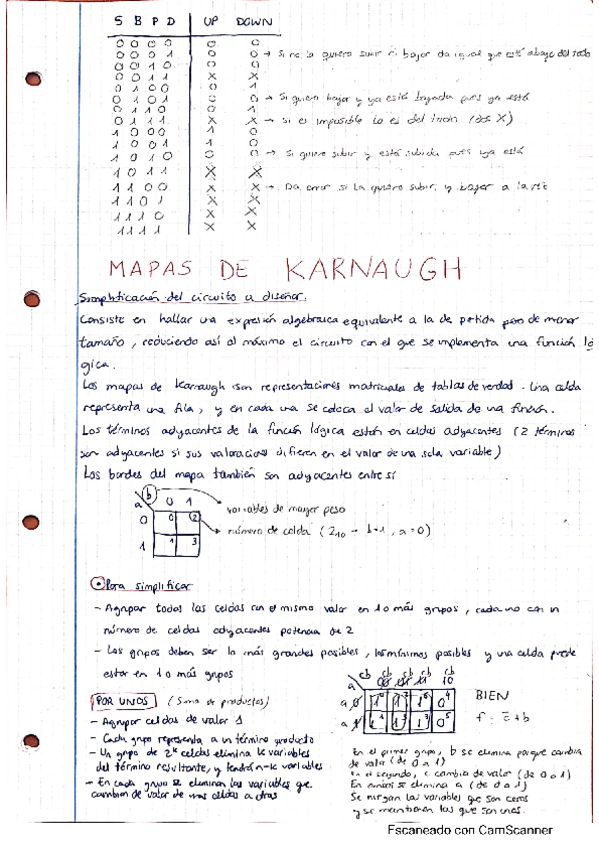 S B P D UP DOWN
0 0 0 0 0 0
0 0 0 1 0 0 → Si no la quiero subir ni bajar da igual que esté abajo del todo
0 0 1 0 0 0
0 0 1 1 X X
0 1 0 0 0 1
0 1 0 1 0 0 → Si quiero bajar y ya está bajada pues ya está
0 1 1 0 0 1
→ si es imposible lo es del todo (dos X)
1 0 0 0 1 0
1 0 0 1 1 0
1 0 1 0 0 0 → Si quiere subir y está subida pues ya está
1 0 1 1 X X
1 1 0 0 X X → Da error si la quiero subir y bajar a la vez
1 1 0 1 X X
1 1 1 0 X X
1 1 1 1 X X
MAPAS DE KARNAUGH
Simplificación del circuito a diseñar.
Consiste en hallar una expresión algebraica equivalente a la de partida pero de menor
tamaño, reduciendo así al máximo el circuito con el que se implementa una función ló
gica.
Los mapas de Karnaugh son representaciones matriciales de tablas de verdad. Una celda
representa una fila, y en cada una se coloca el valor de salida de una función.
Los términos adyacentes de la función lógica están en celdas adyacentes (2 términos
son adyacentes si sus valoraciones difieren en el valor de una sola variable)
Los bordes del mapa también son adyacentes entre sí
b
a 0 1
variables de mayor peso
0 0 2
número de celda (2₁₀ → b=1, a=0)
1 1 3
Para simplificar
- Agrupar todos las celdas con el mismo valor en 1 o más grupos, cada uno con un
número de celdas adyacentes potencia de 2
- Los grupos deben ser lo más grandes posibles, los mínimos posibles y una celda puede
estar en 1 o más grupos
POR UNOS (Suma de productos)
- Agrupar celdas de valor 1
- Cada grupo representa a un término producto
- Un grupo de 2ᵏ celdas elimina k variables
del término resultante, y tendrá n-k variables
- En cada grupo se eliminan las variables que
cambian de valor de unas celdas a otras
cb cb cb cb
a 00 01 11 10
a 0 1⁰ 1² 1⁶ 0⁴
a 1 1¹ 1³ 1⁷ 0⁵
BIEN
f: c̅+b
En el primer grupo, b se elimina porque cambia
de valor (de 0 a 1)
En el segundo, c cambia de valor (de 0 a 1)
En ambos se elimina a (de 0 a 1)
Se niegan las variables que son ceros
y se mantienen las que son unos.
Escaneado con CamScanner